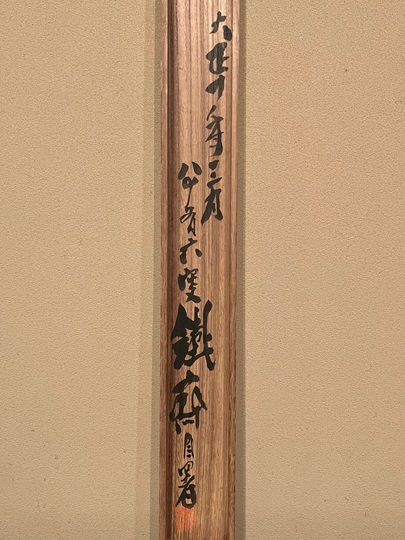 大正十年三月
八十有六叟鐵齋自署